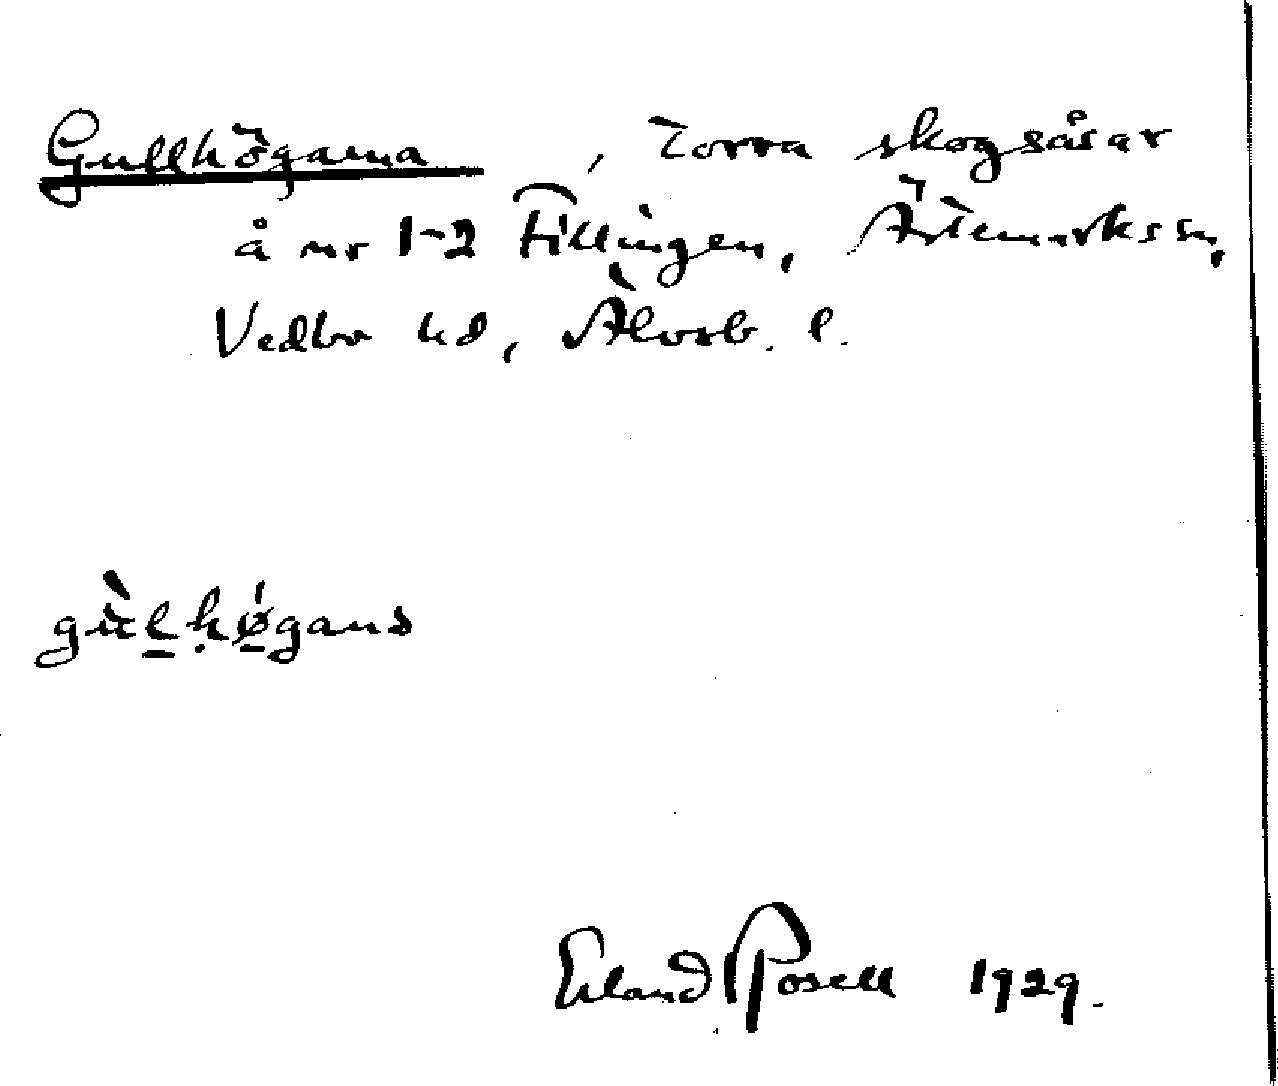 Gullhögarna, torra skogsåsar
å nr 1-2 Fillingen, Ärtemarks sn,
Vedbo hd, Älvsb. l.
gùl̠ḥǿ̠gans
Erland Rosell 1929.